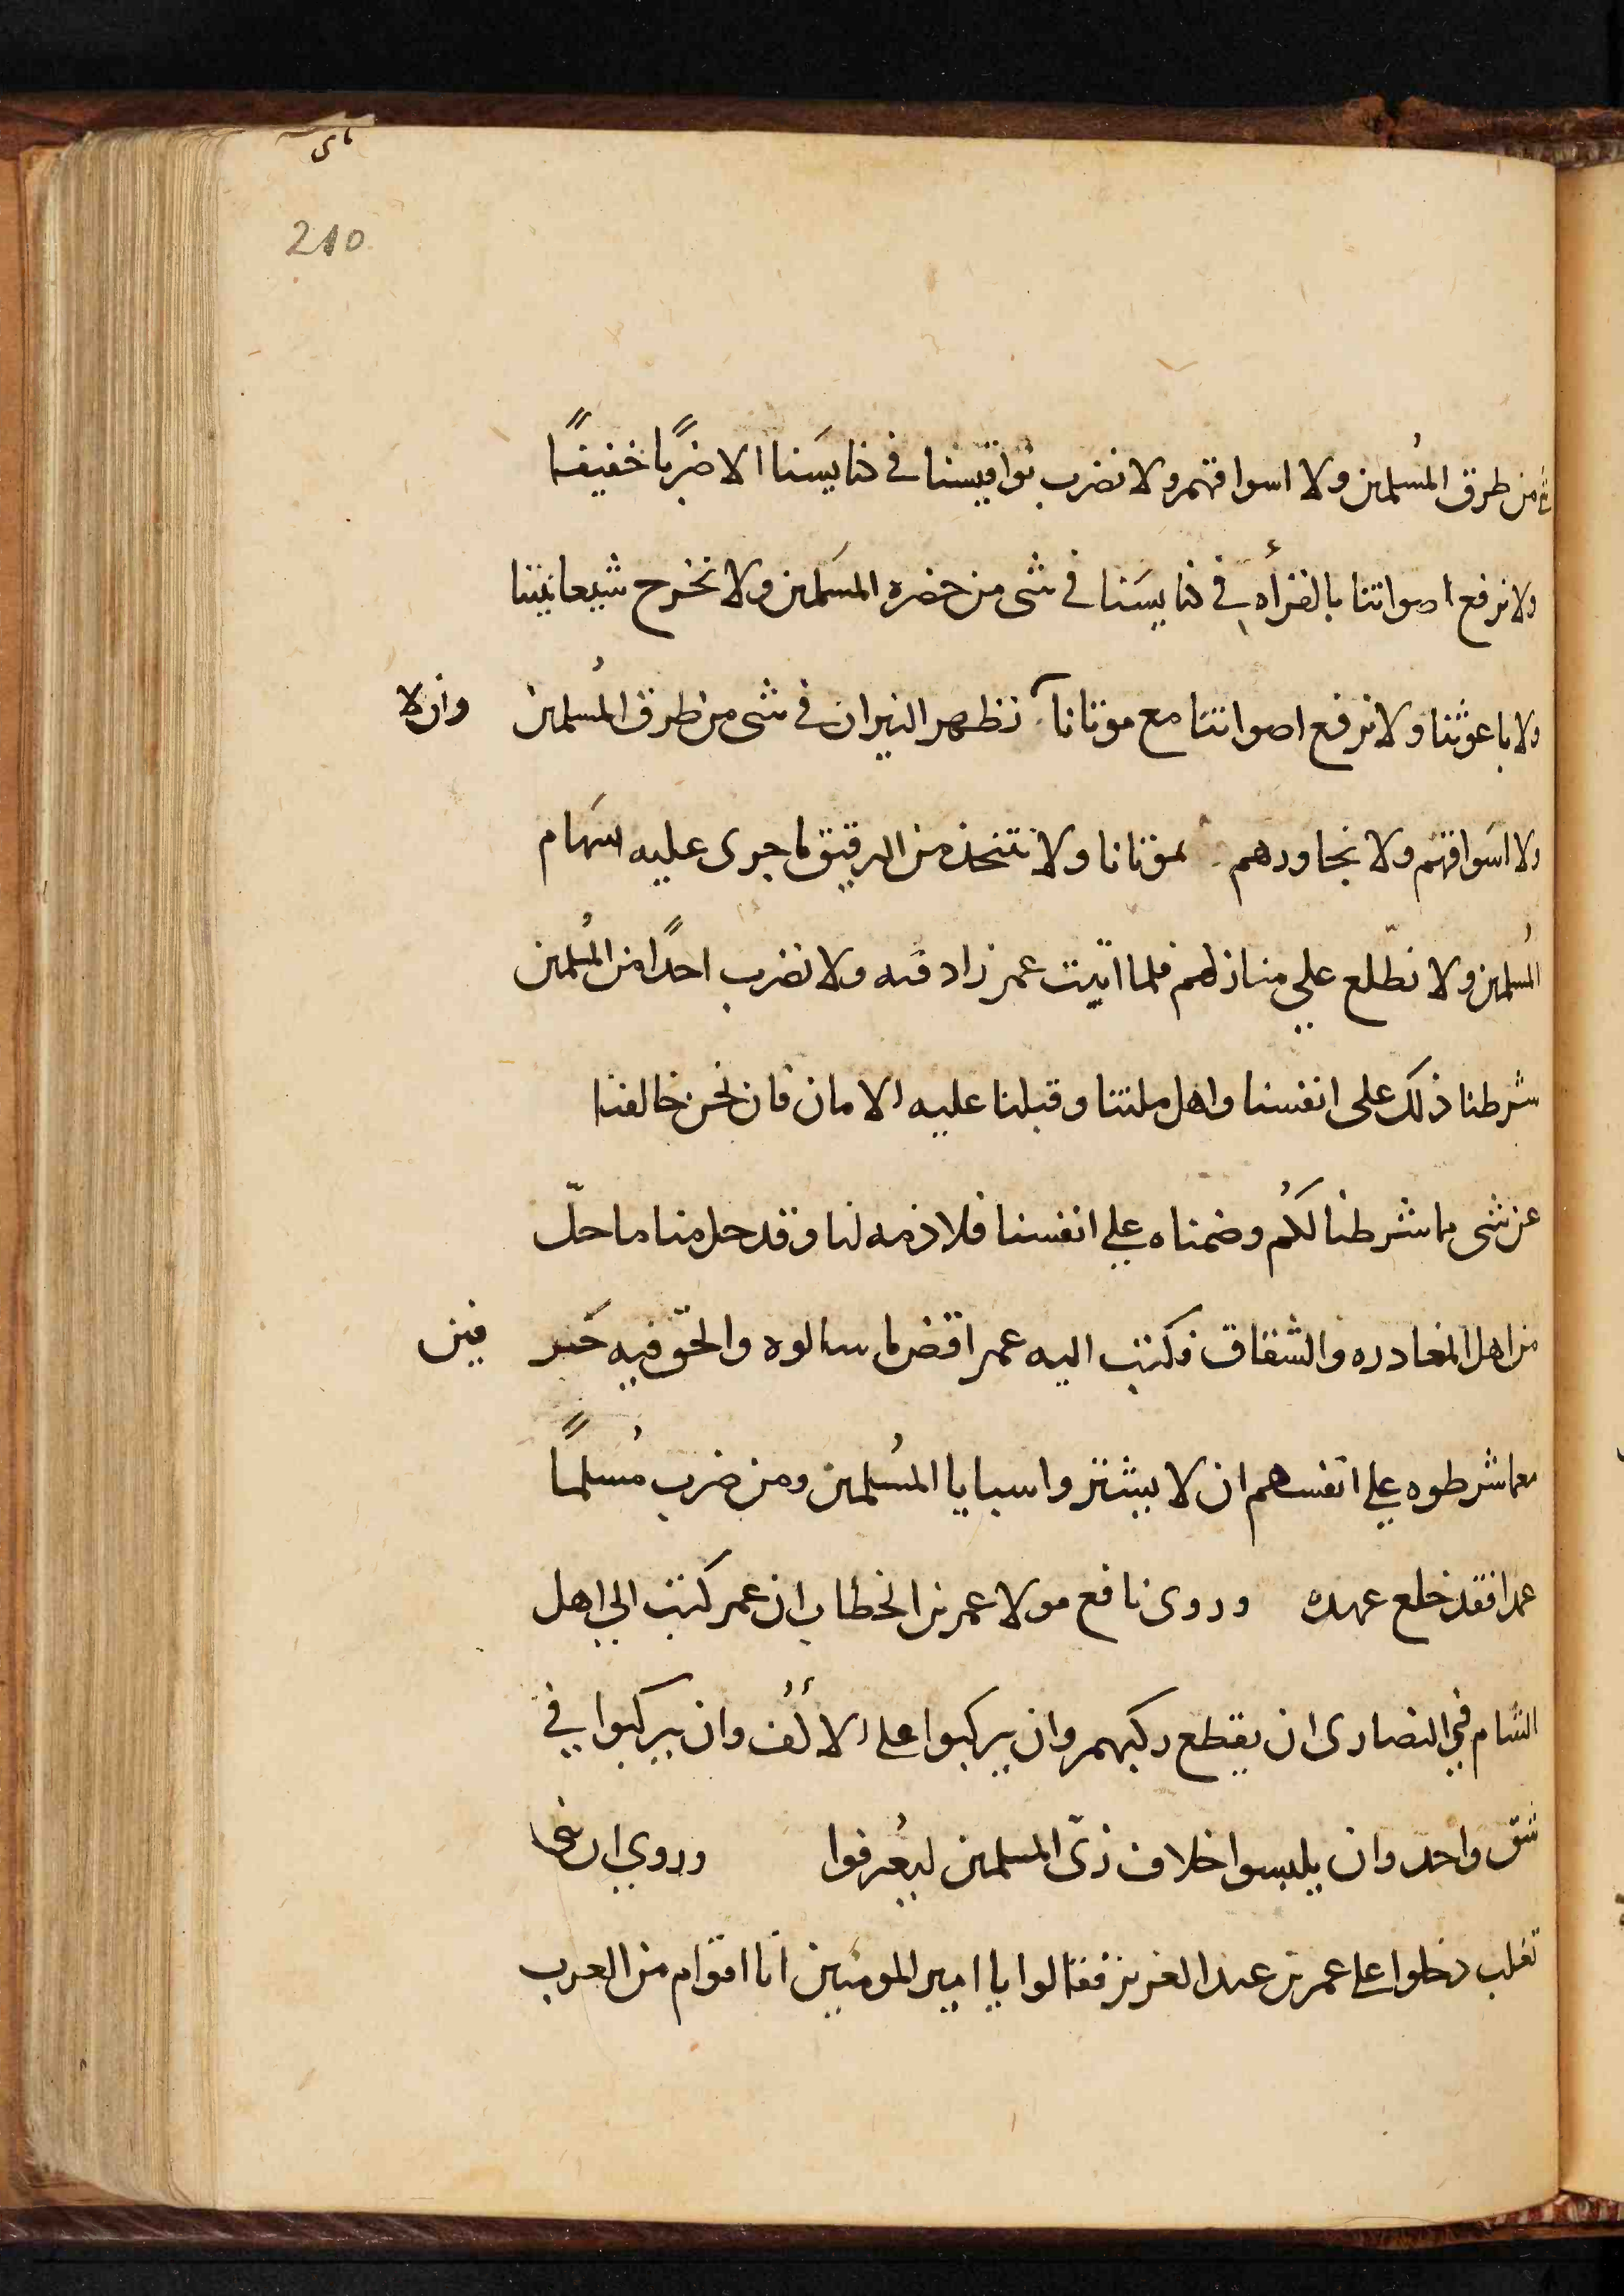 210
شئ من طرق المُسلمين ولا اسواقهم ولا نضرب نواقيسنا في كنايسَنا الا ضربًا خفيفًا
ولا نرفع اصواتنا بالقرأه في كنايسَنا في شى من حضره المسَلمين ولا نخرج شيعانيننا
ولا باعوثنا ولا نرفع اصواتنا مع موتانا نظهر النيران في شى من طرق المُسلمين وان لا
ولا اسَواقهم ولا نجاورهم بموتانا ولا نتخذ من الرقيق ما جرى عليه سَهام
المُسلمين ولا نطّلع علي منازلهم فلما اتيت عمر زاد فيه ولا نضرب احدًا من المُسلمين
شرطنا ذلك على انفسنا واهل ملتنا وقبلنا عليه الامان فان نحن خالفنا
عن شى ما شرطنا لكُم وضمناه علي انفسنا فلا ذمه لنا وقد حل منا ما حلّ
من اهل المغادره والشقاق فكتب اليه عمر اقض ما سالوه والحق فيه حَر فين
معما شرطوه علي انفسهم ان لا يشتروا سبايا المُسلمين ومن ضرب مُسلمًا
عمدا فقد خلع عهده وروى نافع مولا عمر بن الخطاب ان عمر كتب الي اهل
الشام في النصارى ان يقطع ركبهم وان يركبوا على الأكُف وان يركبوا في
شق واحد وان يلبسوا خلاف زىّ المسلمين ليُعرفوا وروي ان بنى
تغلب دخلوا على عمر بن عبد العزيز فقالوا يا امير المومنين انا اقوام من العرب